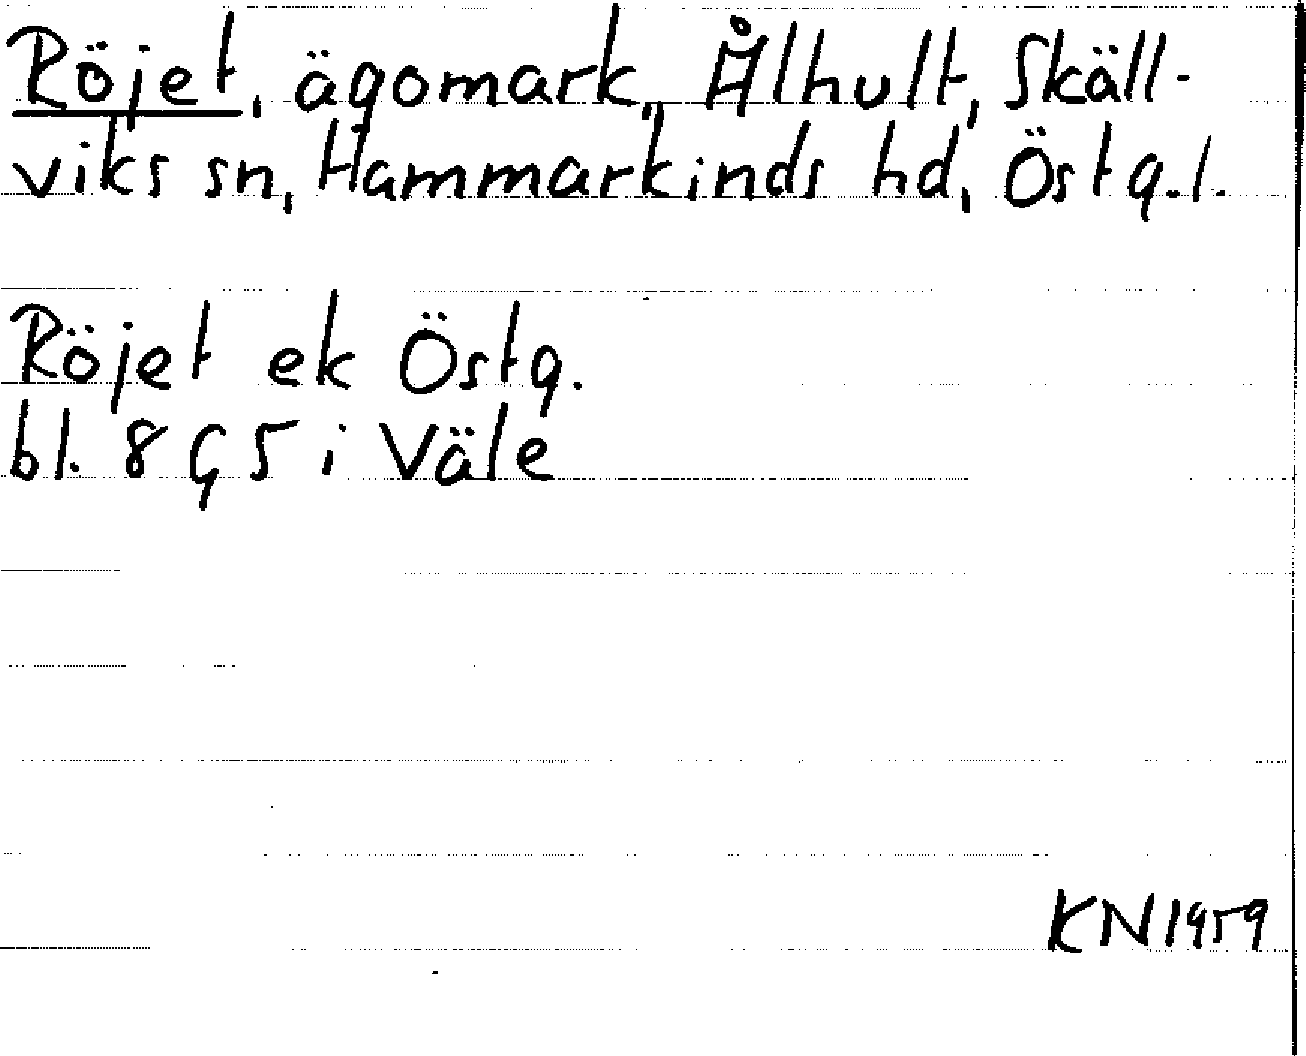 Röjet, ägomark, Ålhult, Skäll-
viks sn, Hammarkinds hd, Östg.l.
Röjet ek Östg.
bl. 8 G 5 i Väle
KN 1959